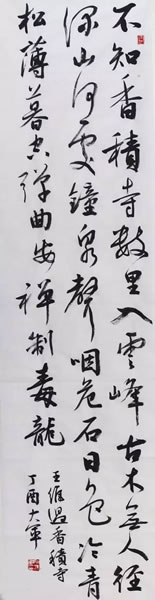 不知香積寺數里入雲峰古木無人徑
深山何處鐘泉聲咽危石日色冷青
松薄暮空潭曲安禪制毒龍
王維過香積寺
丁酉大軍